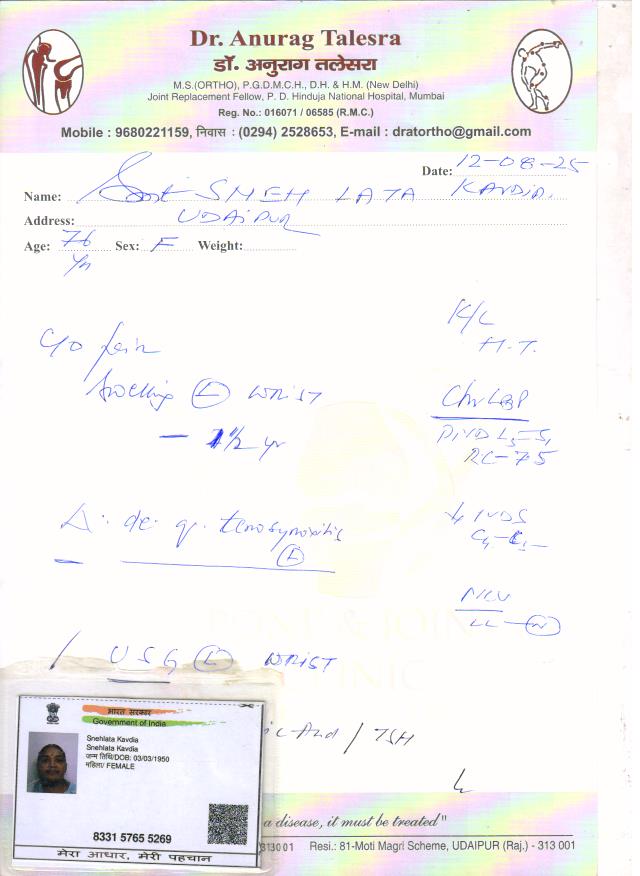 Dr. Anurag Talesra
डॉ. अनुराग तलेसरा
M.S.(ORTHO), P.G.D.M.C.H., D.H. & H.M. (New Delhi)
Joint Replacement Fellow, P. D. Hinduja National Hospital, Mumbai
Reg. No.: 016071 / 06585 (R.M.C.)
Mobile : 9680221159, निवास : (0294) 2528653, E-mail : dratortho@gmail.com
Date: 12-08-25
Name: Smt SNEH LATA KAVDIA
Address: UDAIPUR
Age: 76 yr Sex: F Weight:
K/C
H.T.
C/o pain
swelling (L) WRIST
- 1 1/2 yr
Chr LBP
PIVD L5-S1
RC-75
Δ: de. q. tenosynovitis
(L)
↓ IVDS
C4-C5
NCV
LL - (N)
/ USG (L) WRIST
BONE & JOINT
CLINIC
/ TSH
भारत सरकार
Government of India
Snehlata Kavdia
Snehlata Kavdia
जन्म तिथि/DOB: 03/03/1950
महिला/ FEMALE
8331 5765 5269
मेरा आधार, मेरी पहचान
a disease, it must be treated"
313001 Resi.: 81-Moti Magri Scheme, UDAIPUR (Raj.) - 313 001